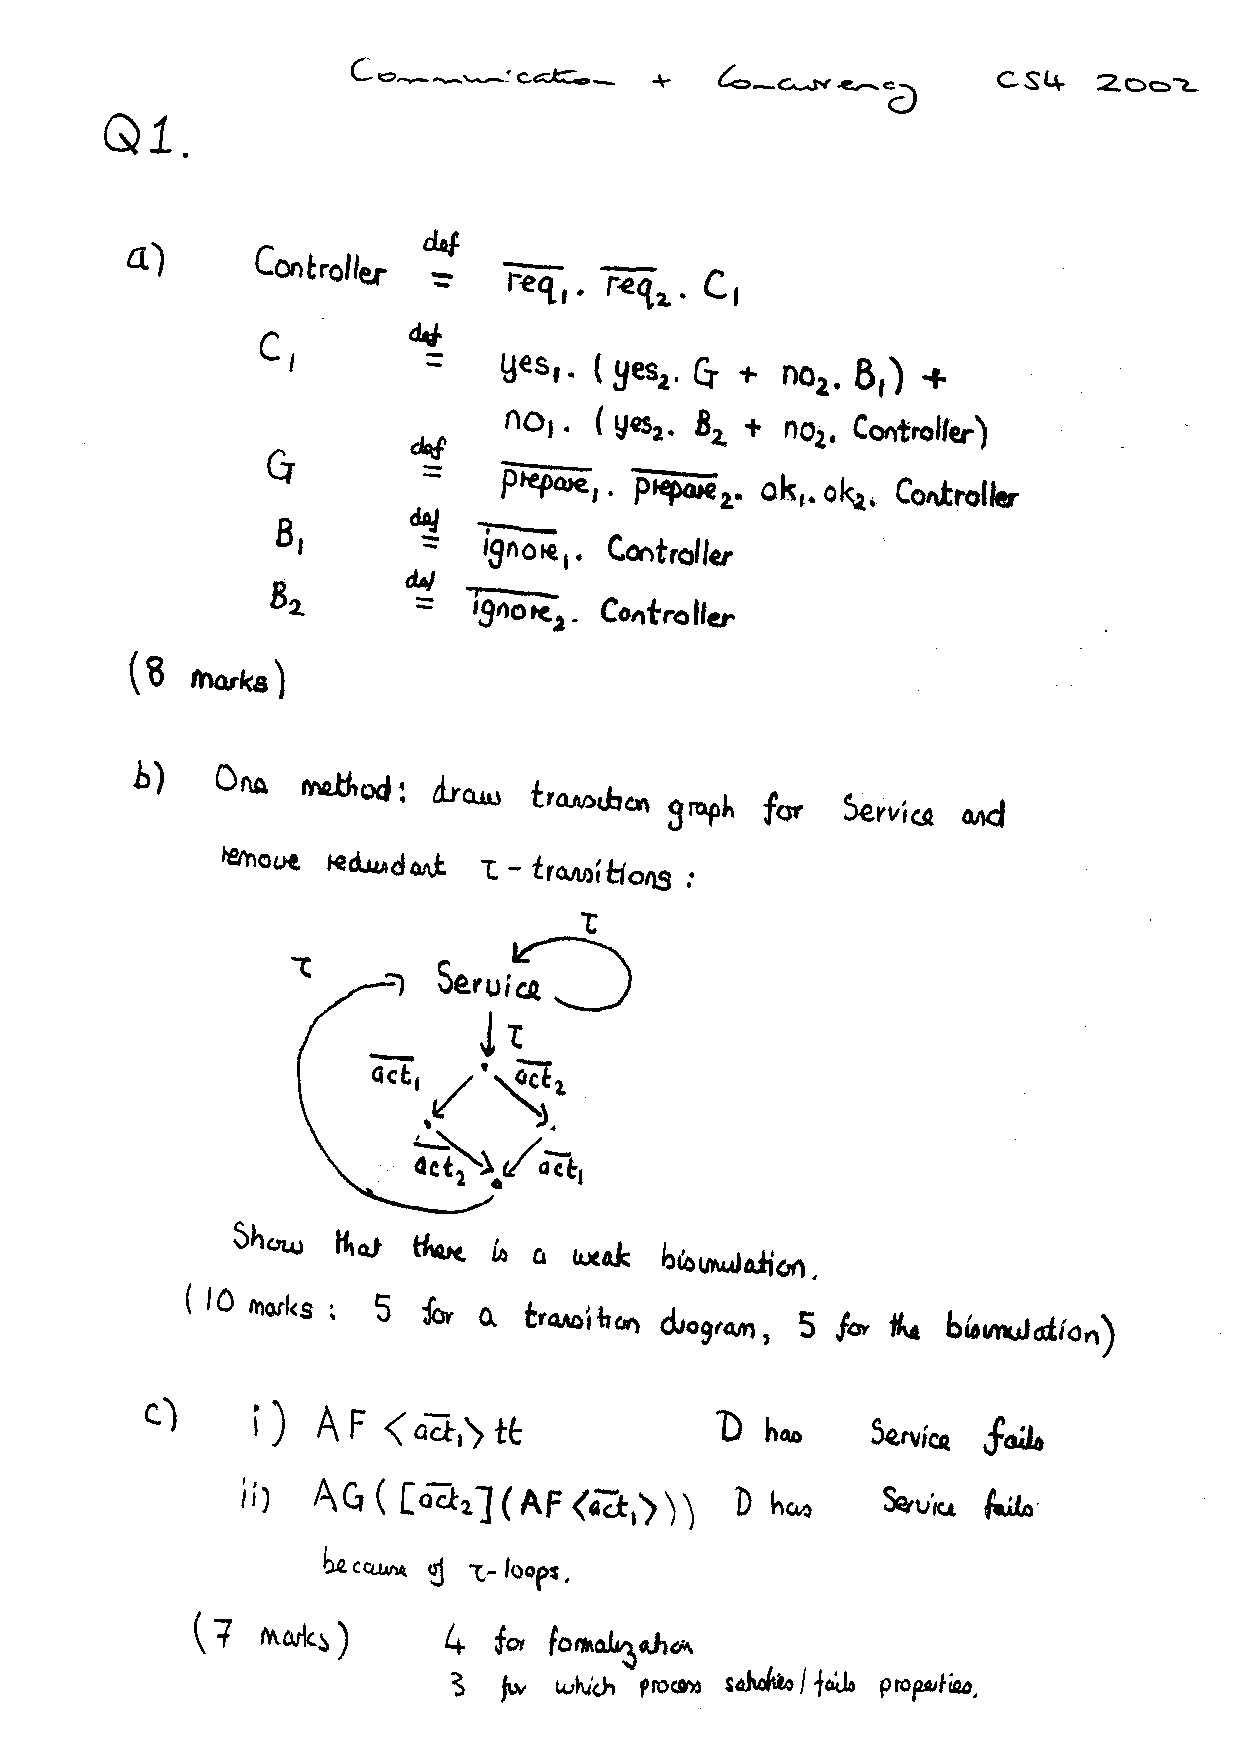 Communication + Concurrency CS4 2002
Q1.
a) Controller def= \overline{req}₁. \overline{req}₂. C₁
C₁ def= yes₁. (yes₂. G + no₂. B₁) +
no₁. (yes₂. B₂ + no₂. Controller)
G def= \overline{prepare}₁. \overline{prepare}₂. ok₁. ok₂. Controller
B₁ def= \overline{ignore}₁. Controller
B₂ def= \overline{ignore}₂. Controller
(8 marks)
b) One method: draw transition graph for Service and
remove redundant τ-transitions:
τ
τ Service
τ
\overline{act}₁ \overline{act}₂
\overline{act}₂ \overline{act}₁
Show that there is a weak bisimulation.
(10 marks: 5 for a transition diagram, 5 for the bisimulation)
c) i) AF <\overline{act}₁> tt D has Service fails
ii) AG([\overline{act}₂](AF <\overline{act}₁>)) D has Service fails
because of τ-loops.
(7 marks) 4 for formalization
3 for which process satisfies/fails properties.